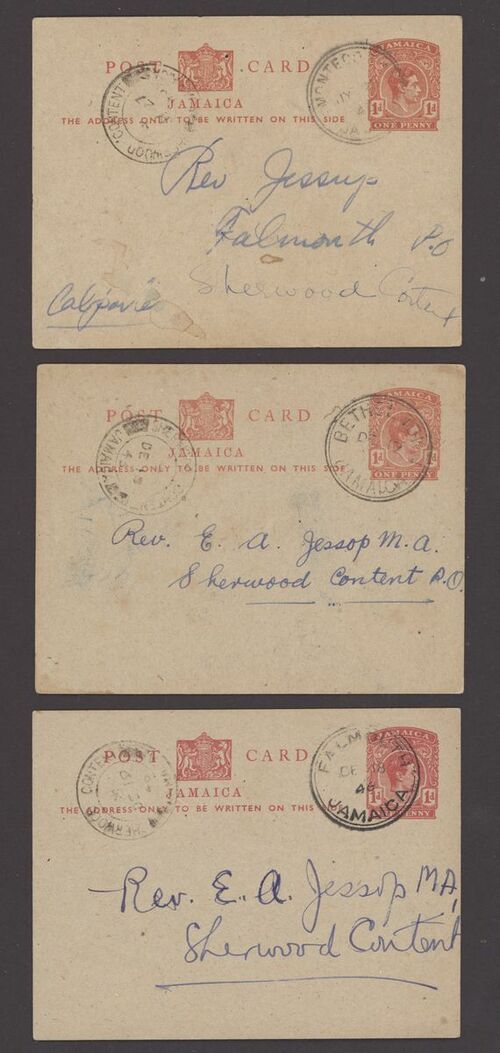 POST CARD
JAMAICA
THE ADDRESS ONLY TO BE WRITTEN ON THIS SIDE
JAMAICA
1d 1d
ONE PENNY
CONTENT
Rev Jessup
Falmouth P.O
Sherwood Content
POST CARD
JAMAICA
THE ADDRESS ONLY TO BE WRITTEN ON THIS SIDE
JAMAICA
1d 1d
ONE PENNY
BETHEL
JAMAICA
Rev. E. A. Jessop M.A.
Sherwood Content P.O.
POST CARD
JAMAICA
THE ADDRESS ONLY TO BE WRITTEN ON THIS
1d 1d
PENNY
FALMOUTH
46
JAMAICA
CONTENT
SHERWOOD
Rev. E. A. Jessop MA,
Sherwood Content